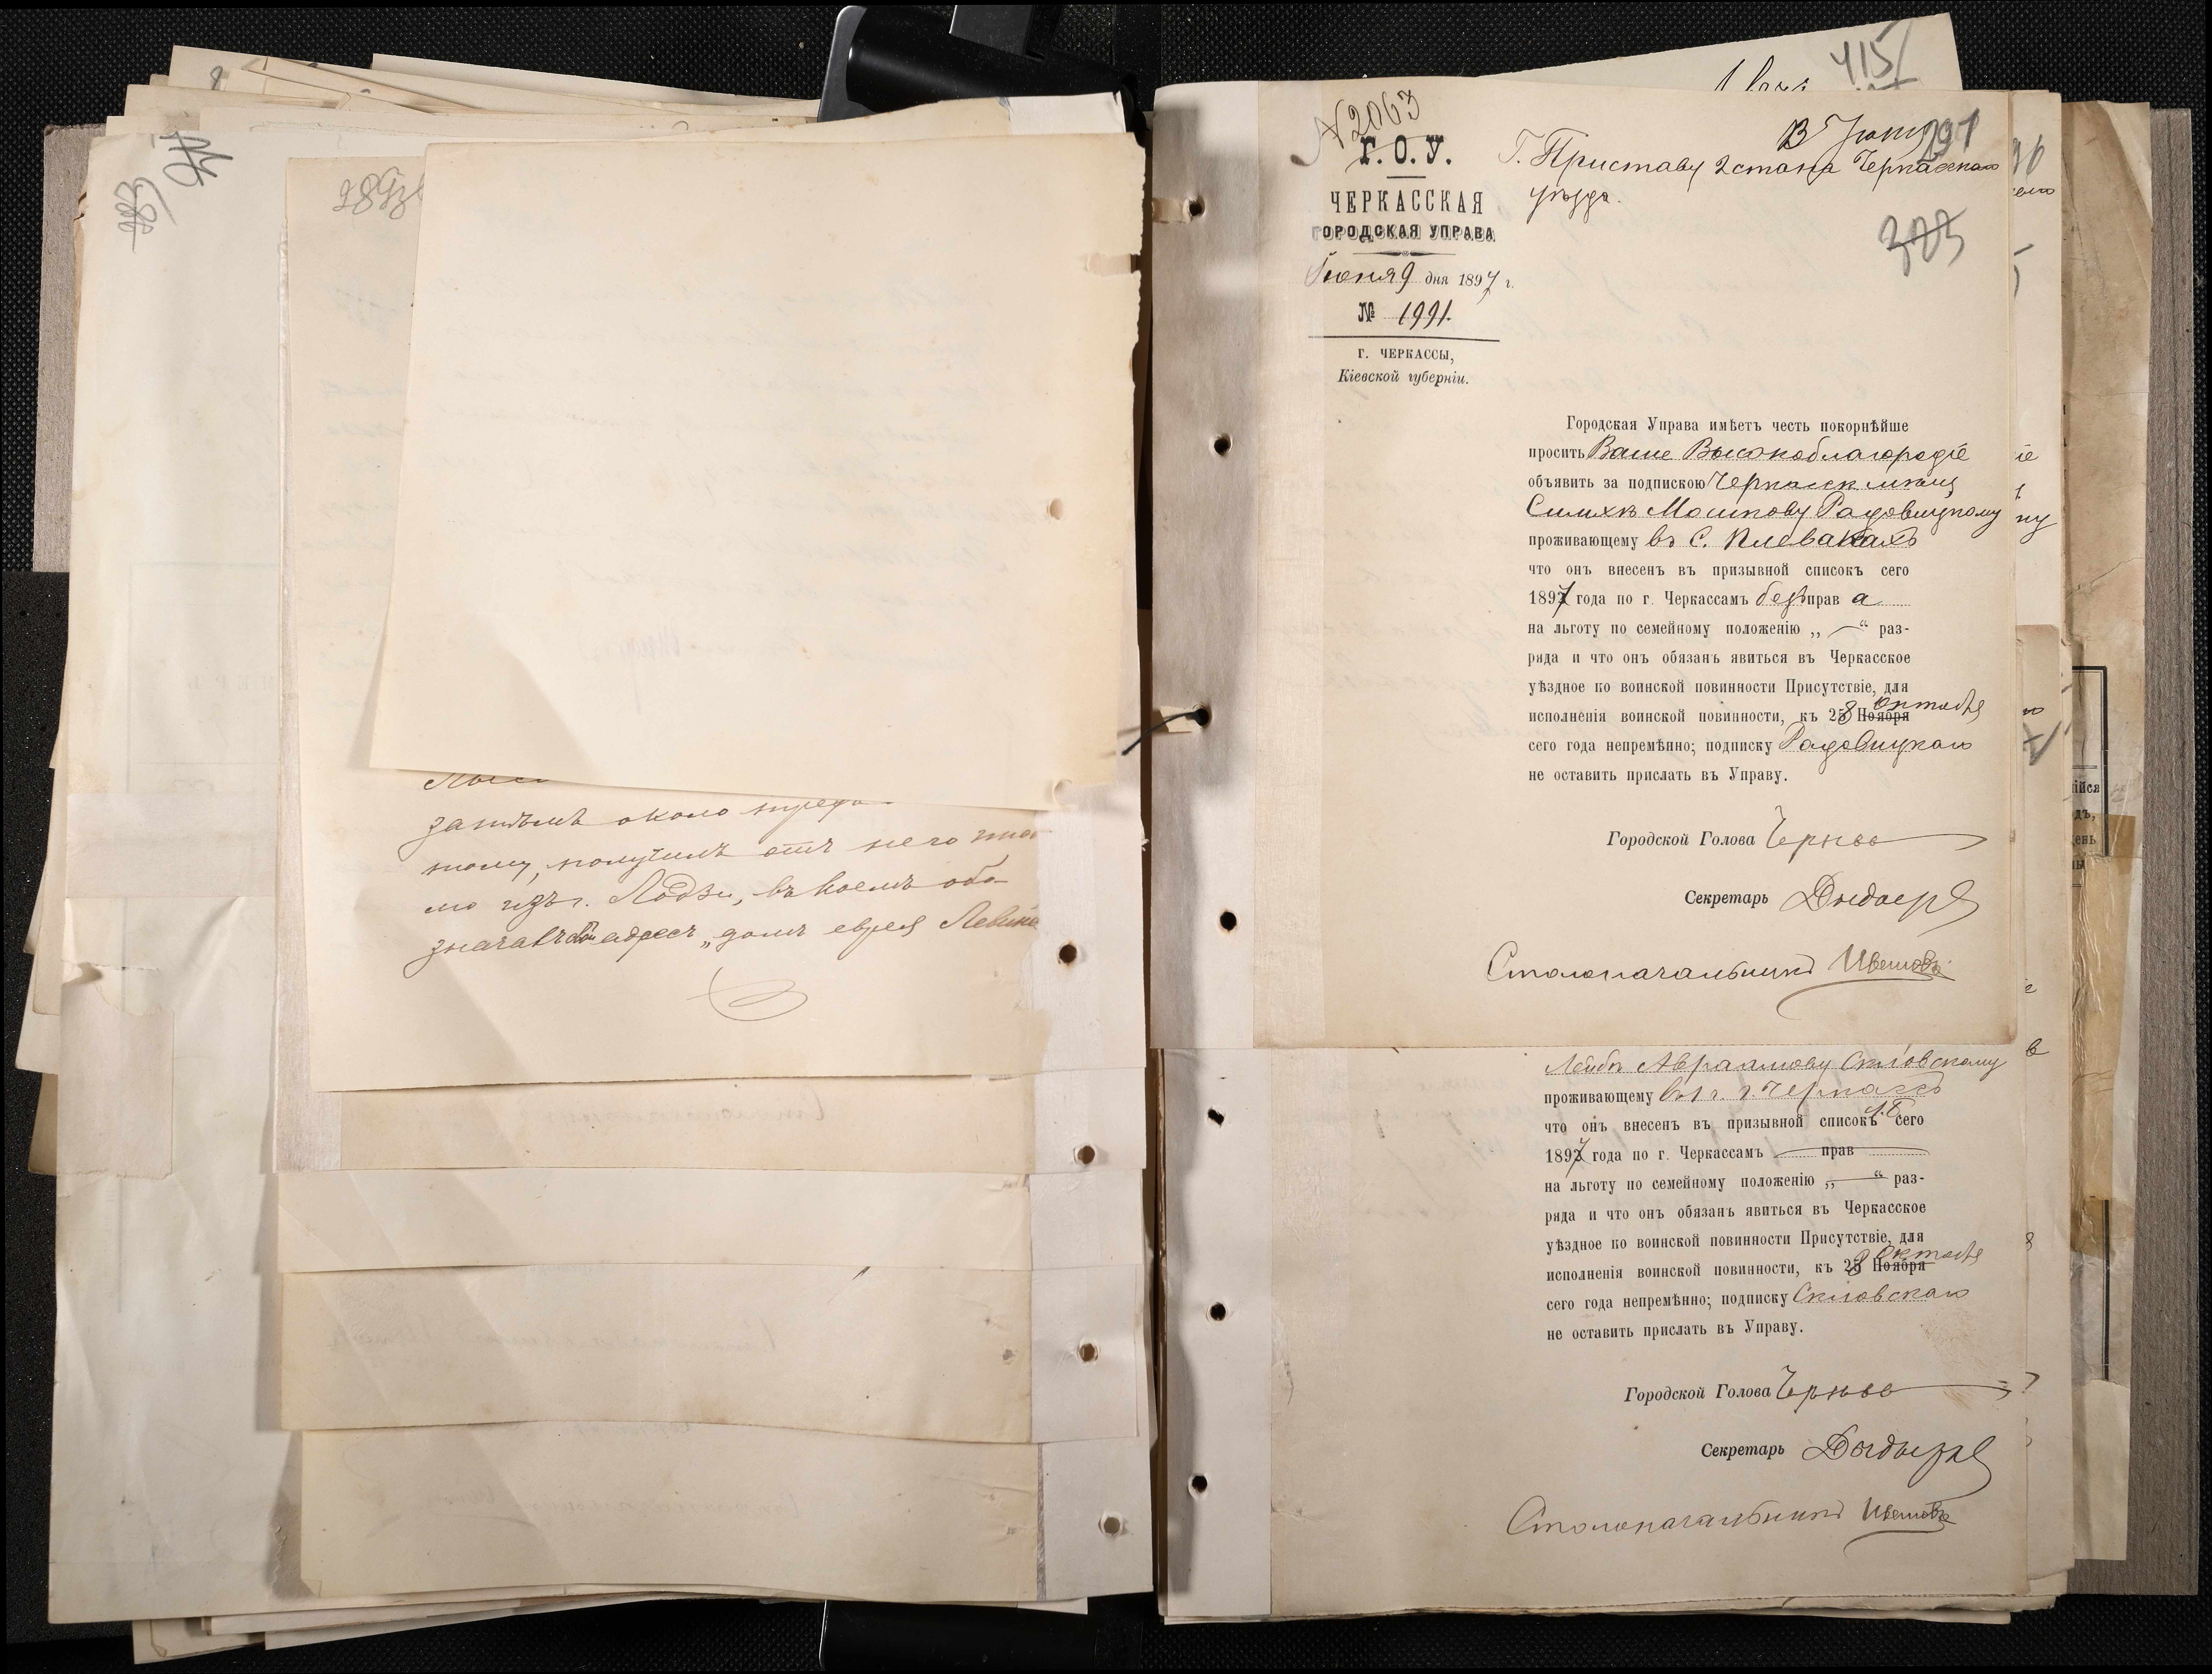 289
затѣмъ около
тому, получилъ отъ него
мо изъ г. Лодзи, въ коемъ обо-
значалъ свой адресъ „домъ еврея Левина
415
№ 2063
Г. О. У.
ЧЕРКАССКАЯ
ГОРОДСКАЯ УПРАВА
Іюня 9 дня 1897 г.
№ 1991.
г. ЧЕРКАССЫ,
Кіевской губерніи.
13 Іюня
291
Г. Приставу 2 стана Черкасскаго
уѣзда.
305
Городская Управа имѣетъ честь покорнѣйше
просить Ваше Высокоблагородіе
объявить за подпискою Черкасск мѣщ
Симхѣ Мошкову Радовицкому
проживающему въ С. Плевакахъ
что онъ внесенъ въ призывной списокъ сего
1897 года по г. Черкассамъ безъ прав а
на льготу по семейному положенію „ — “ раз-
ряда и что онъ обязанъ явиться въ Черкасское
уѣздное по воинской повинности Присутствіе, для
исполненія воинской повинности, къ 28 Ноября Октября
сего года непремѣнно; подписку Радовицкаго
не оставить прислать въ Управу.
Городской Голова
Секретарь
Столоначальникъ
Лейбѣ Авраамову Скловскому
проживающему въ г. Черкассъ
что онъ внесенъ въ призывной списокъ ч. Б сего
1897 года по г. Черкассамъ — прав —
на льготу по семейному положенію „ — “ раз-
ряда и что онъ обязанъ явиться въ Черкасское
уѣздное по воинской повинности Присутствіе, для
исполненія воинской повинности, къ 28 Ноября Октября
сего года непремѣнно; подписку Скловскаго
не оставить прислать въ Управу.
Городской Голова
Секретарь
Столоначальникъ